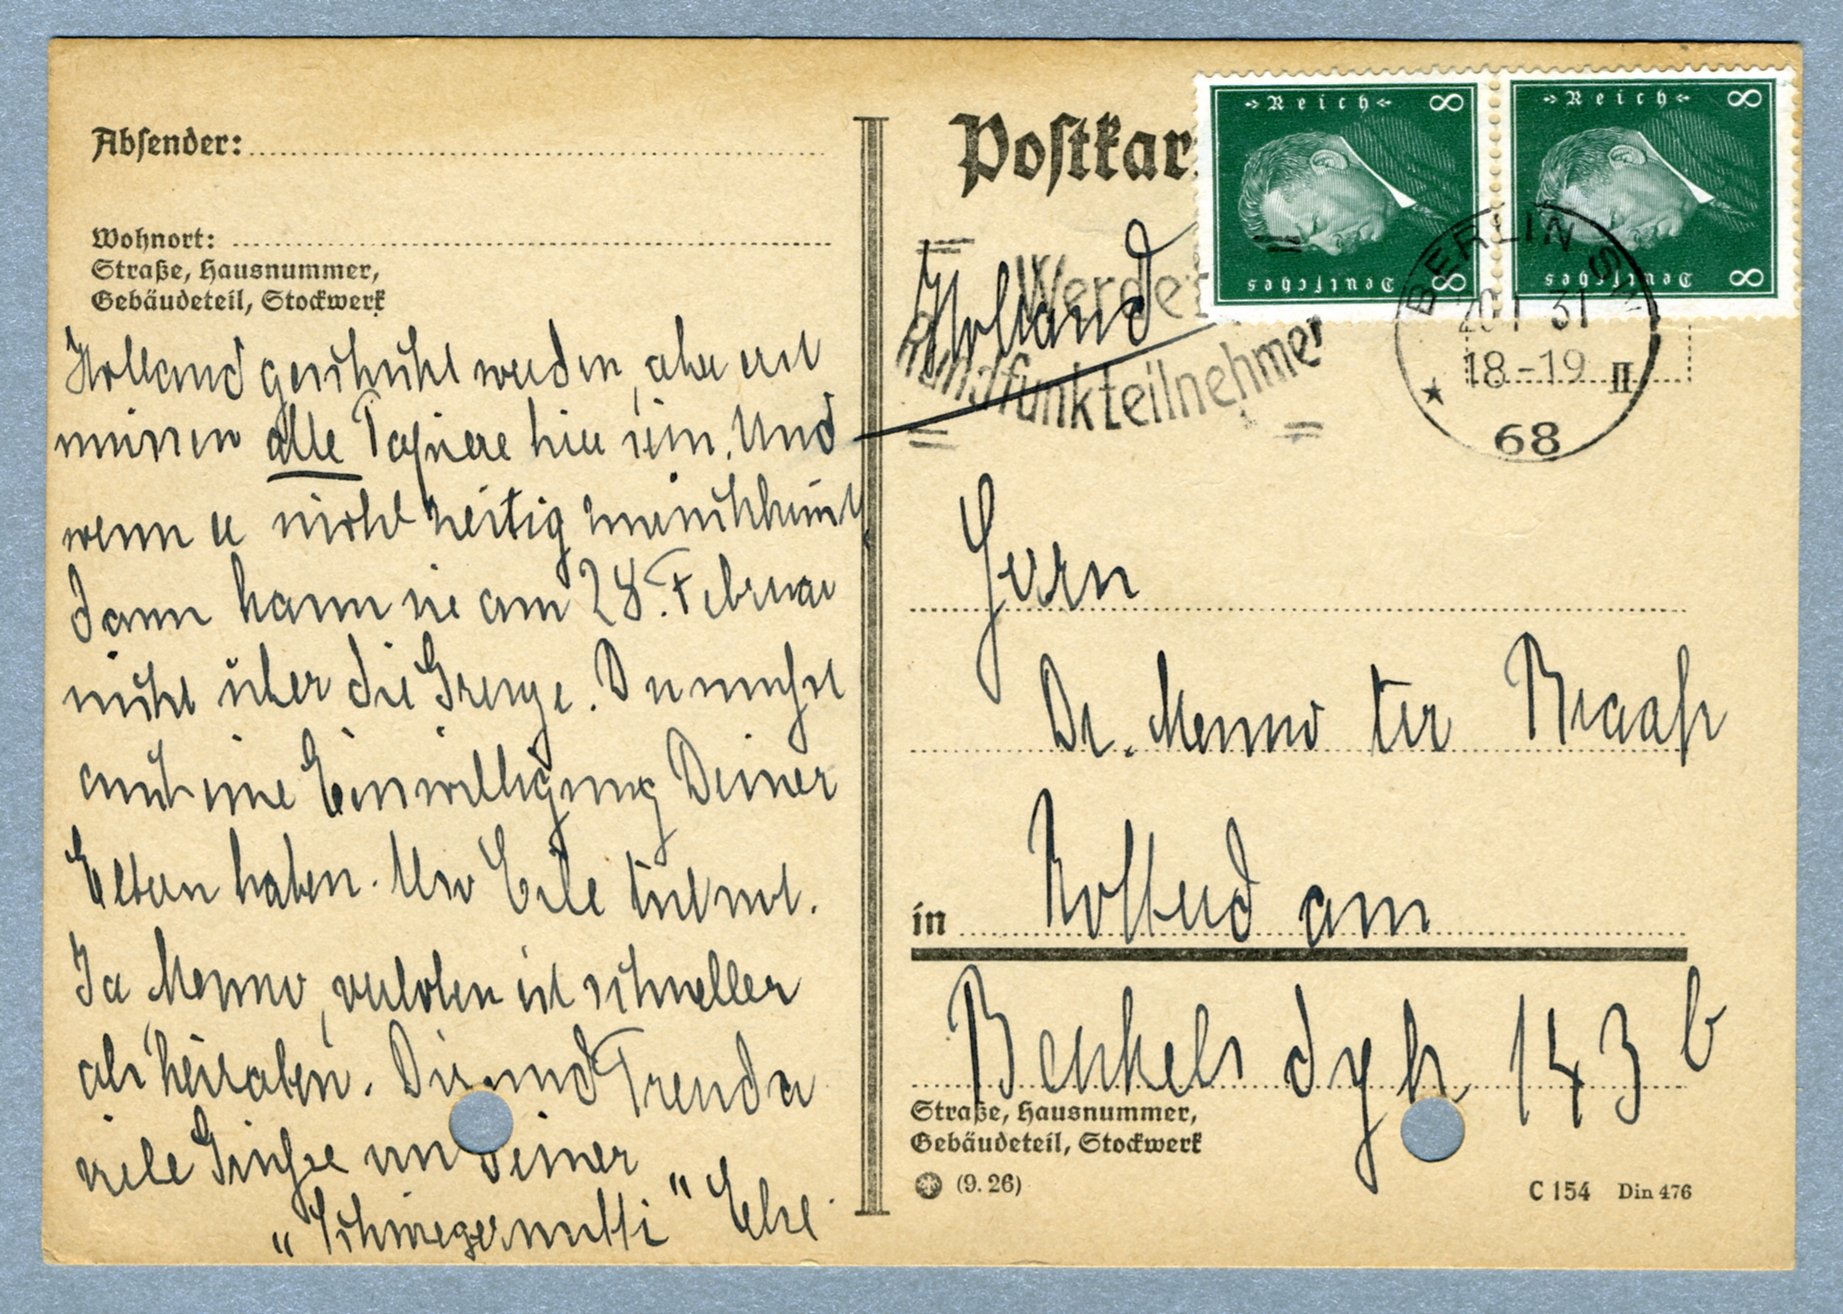 Absender:
Wohnort:
Straße, Hausnummer,
Gebäudeteil, Stockwerk
Holland geschickt werden, aber erst
müssen alle Papiere hier sein. Und
wenn er nicht zeitig
dann kann sie am 28. Februar
nicht über die Grenze. Du musst
auch eine Einwilligung Deiner
Eltern haben. Also Eile tut not.
Ja Menno, verloben ist schneller
als heiraten. Dir und Trenda
viele Grüsse von Deiner
"Schwiegermutti" Else
Postkar
Reich 8
Deutsches 8
Reich 8
Deutsches 8
Holland
Werdet
Rundfunkteilnehmer
BERLIN SW
20.1 31
18-19 II
68
Herrn
Dr. Menno ter Braak
in Rotterdam
Beukelsdyk 143 b
Straße, Hausnummer,
Gebäudeteil, Stockwerk
(9. 26)
C 154 Din 476